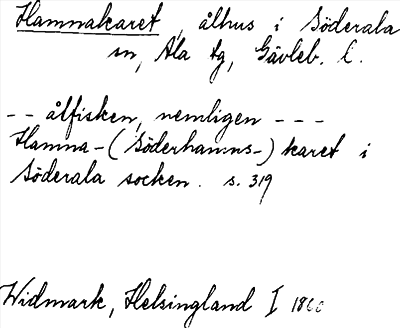 Hamnakaret, ålhus i Söderala
sn, Ala tg, Gävleb. l.
-- ålfisken, nemligen ---
Hamna-(Söderhamns-) karet i
Söderala socken. s. 319
Widmark, Helsingland I 1860